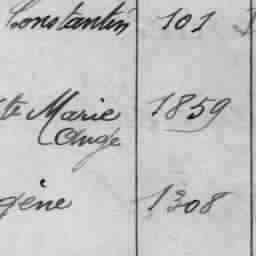 Constantin 101
te Marie 1859
Ange
gène 1308